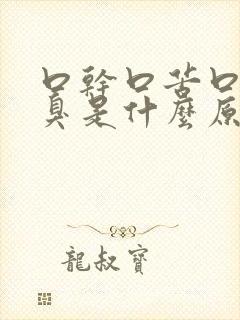 口幹口苦口
臭是什麼原
龍叔寶